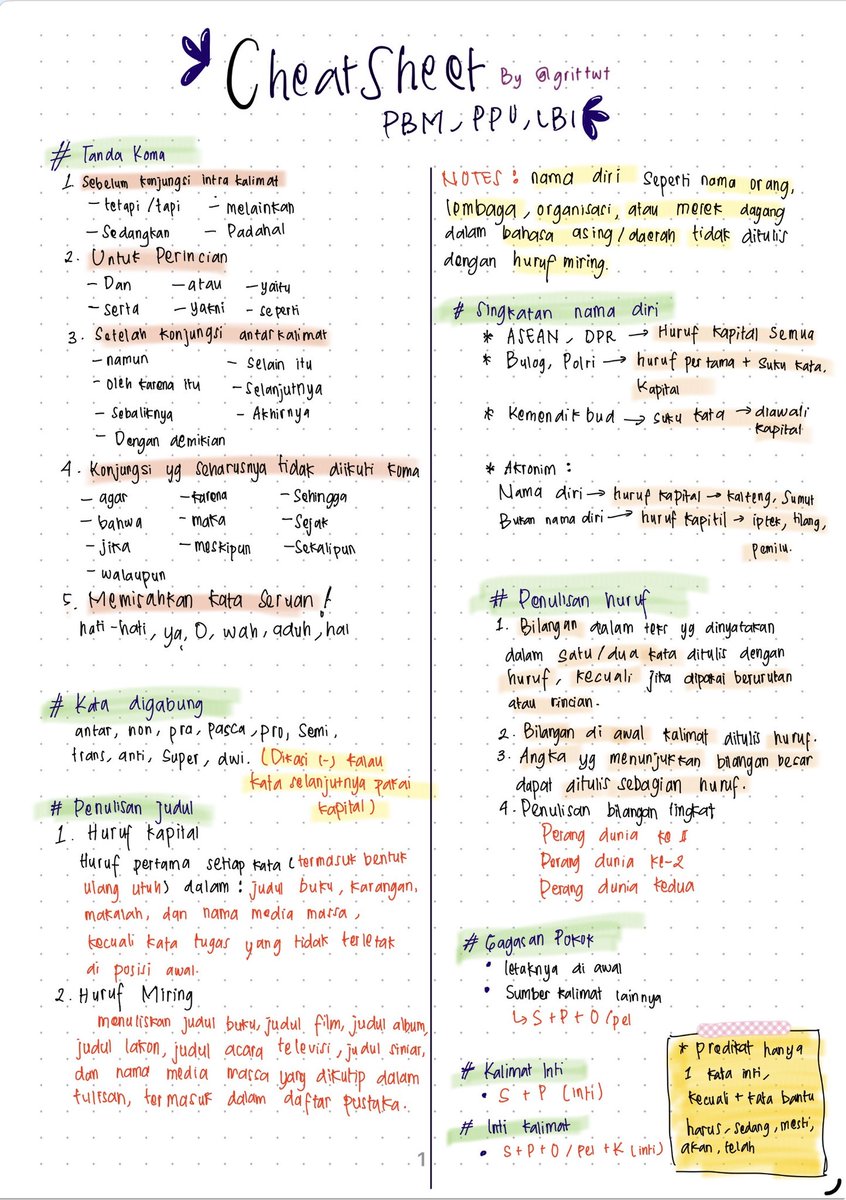 CheatSheet By @grittwt
PBM, PPU, LBI
# Tanda Koma
1. Sebelum konjungsi intra kalimat
- tetapi /tapi - melainkan
- Sedangkan - Padahal
2. Untuk Perincian
- Dan - atau - yaitu
- serta - yakni - seperti
3. Setelah konjungsi antarkalimat
- namun - Selain itu
- oleh karena itu - Selanjutnya
- Sebaliknya - Akhirnya
- Dengan demikian
4. Konjungsi yg seharusnya tidak diikuti koma
- agar - karena - Sehingga
- bahwa - maka - Sejak
- jika - meskipun - Sekalipun
- walaupun
5. Memisahkan kata seruan!
hati-hati, ya, O, wah, aduh, hai
# Kata digabung
antar, non, pra, pasca, pro, semi,
trans, anti, super, dwi. (Dikasi (-) kalau
kata selanjutnya pakai
kapital)
# Penulisan judul
1. Huruf kapital
Huruf pertama setiap kata (termasuk bentuk
ulang utuh) dalam : judul buku, karangan,
makalah, dan nama media massa,
kecuali kata tugas yang tidak terletak
di posisi awal.
2. Huruf Miring
menuliskan judul buku, judul film, judul album,
judul lakon, judul acara televisi, judul siniar,
dan nama media massa yang dikutip dalam
tulisan, termasuk dalam daftar pustaka.
NOTES : nama diri seperti nama orang,
lembaga, organisasi, atau merek dagang
dalam bahasa asing/daerah tidak ditulis
dengan huruf miring.
# Singkatan nama diri
* ASEAN, DPR → Huruf Kapital Semua
* Bulog, Polri → huruf pertama + suku kata,
Kapital
* Kemendikbud → suku kata → diawali
kapital
* Akronim :
Nama diri → huruf kapital → kalteng, Sumut
Bukan nama diri → huruf kapitil → iptek, tilang,
pemilu.
# Penulisan huruf
1. Bilangan dalam teks yg dinyatakan
dalam satu/dua kata ditulis dengan
huruf, kecuali jika dipakai berurutan
atau rincian.
2. Bilangan di awal kalimat ditulis huruf.
3. Angka yg menunjukkan bilangan besar
dapat ditulis sebagian huruf.
4. Penulisan bilangan tingkat
Perang dunia ke
Perang dunia ke-2
Perang dunia kedua
# Gagasan Pokok
• letaknya di awal
• Sumber kalimat lainnya
↳ S+P+O /pel
# Kalimat Inti
• S + P (inti)
# Inti kalimat
• S+P+O / pel +K (inti)
* predikat hanya
1 kata inti,
kecuali + kata bantu
harus, sedang, mesti,
akan, telah
1